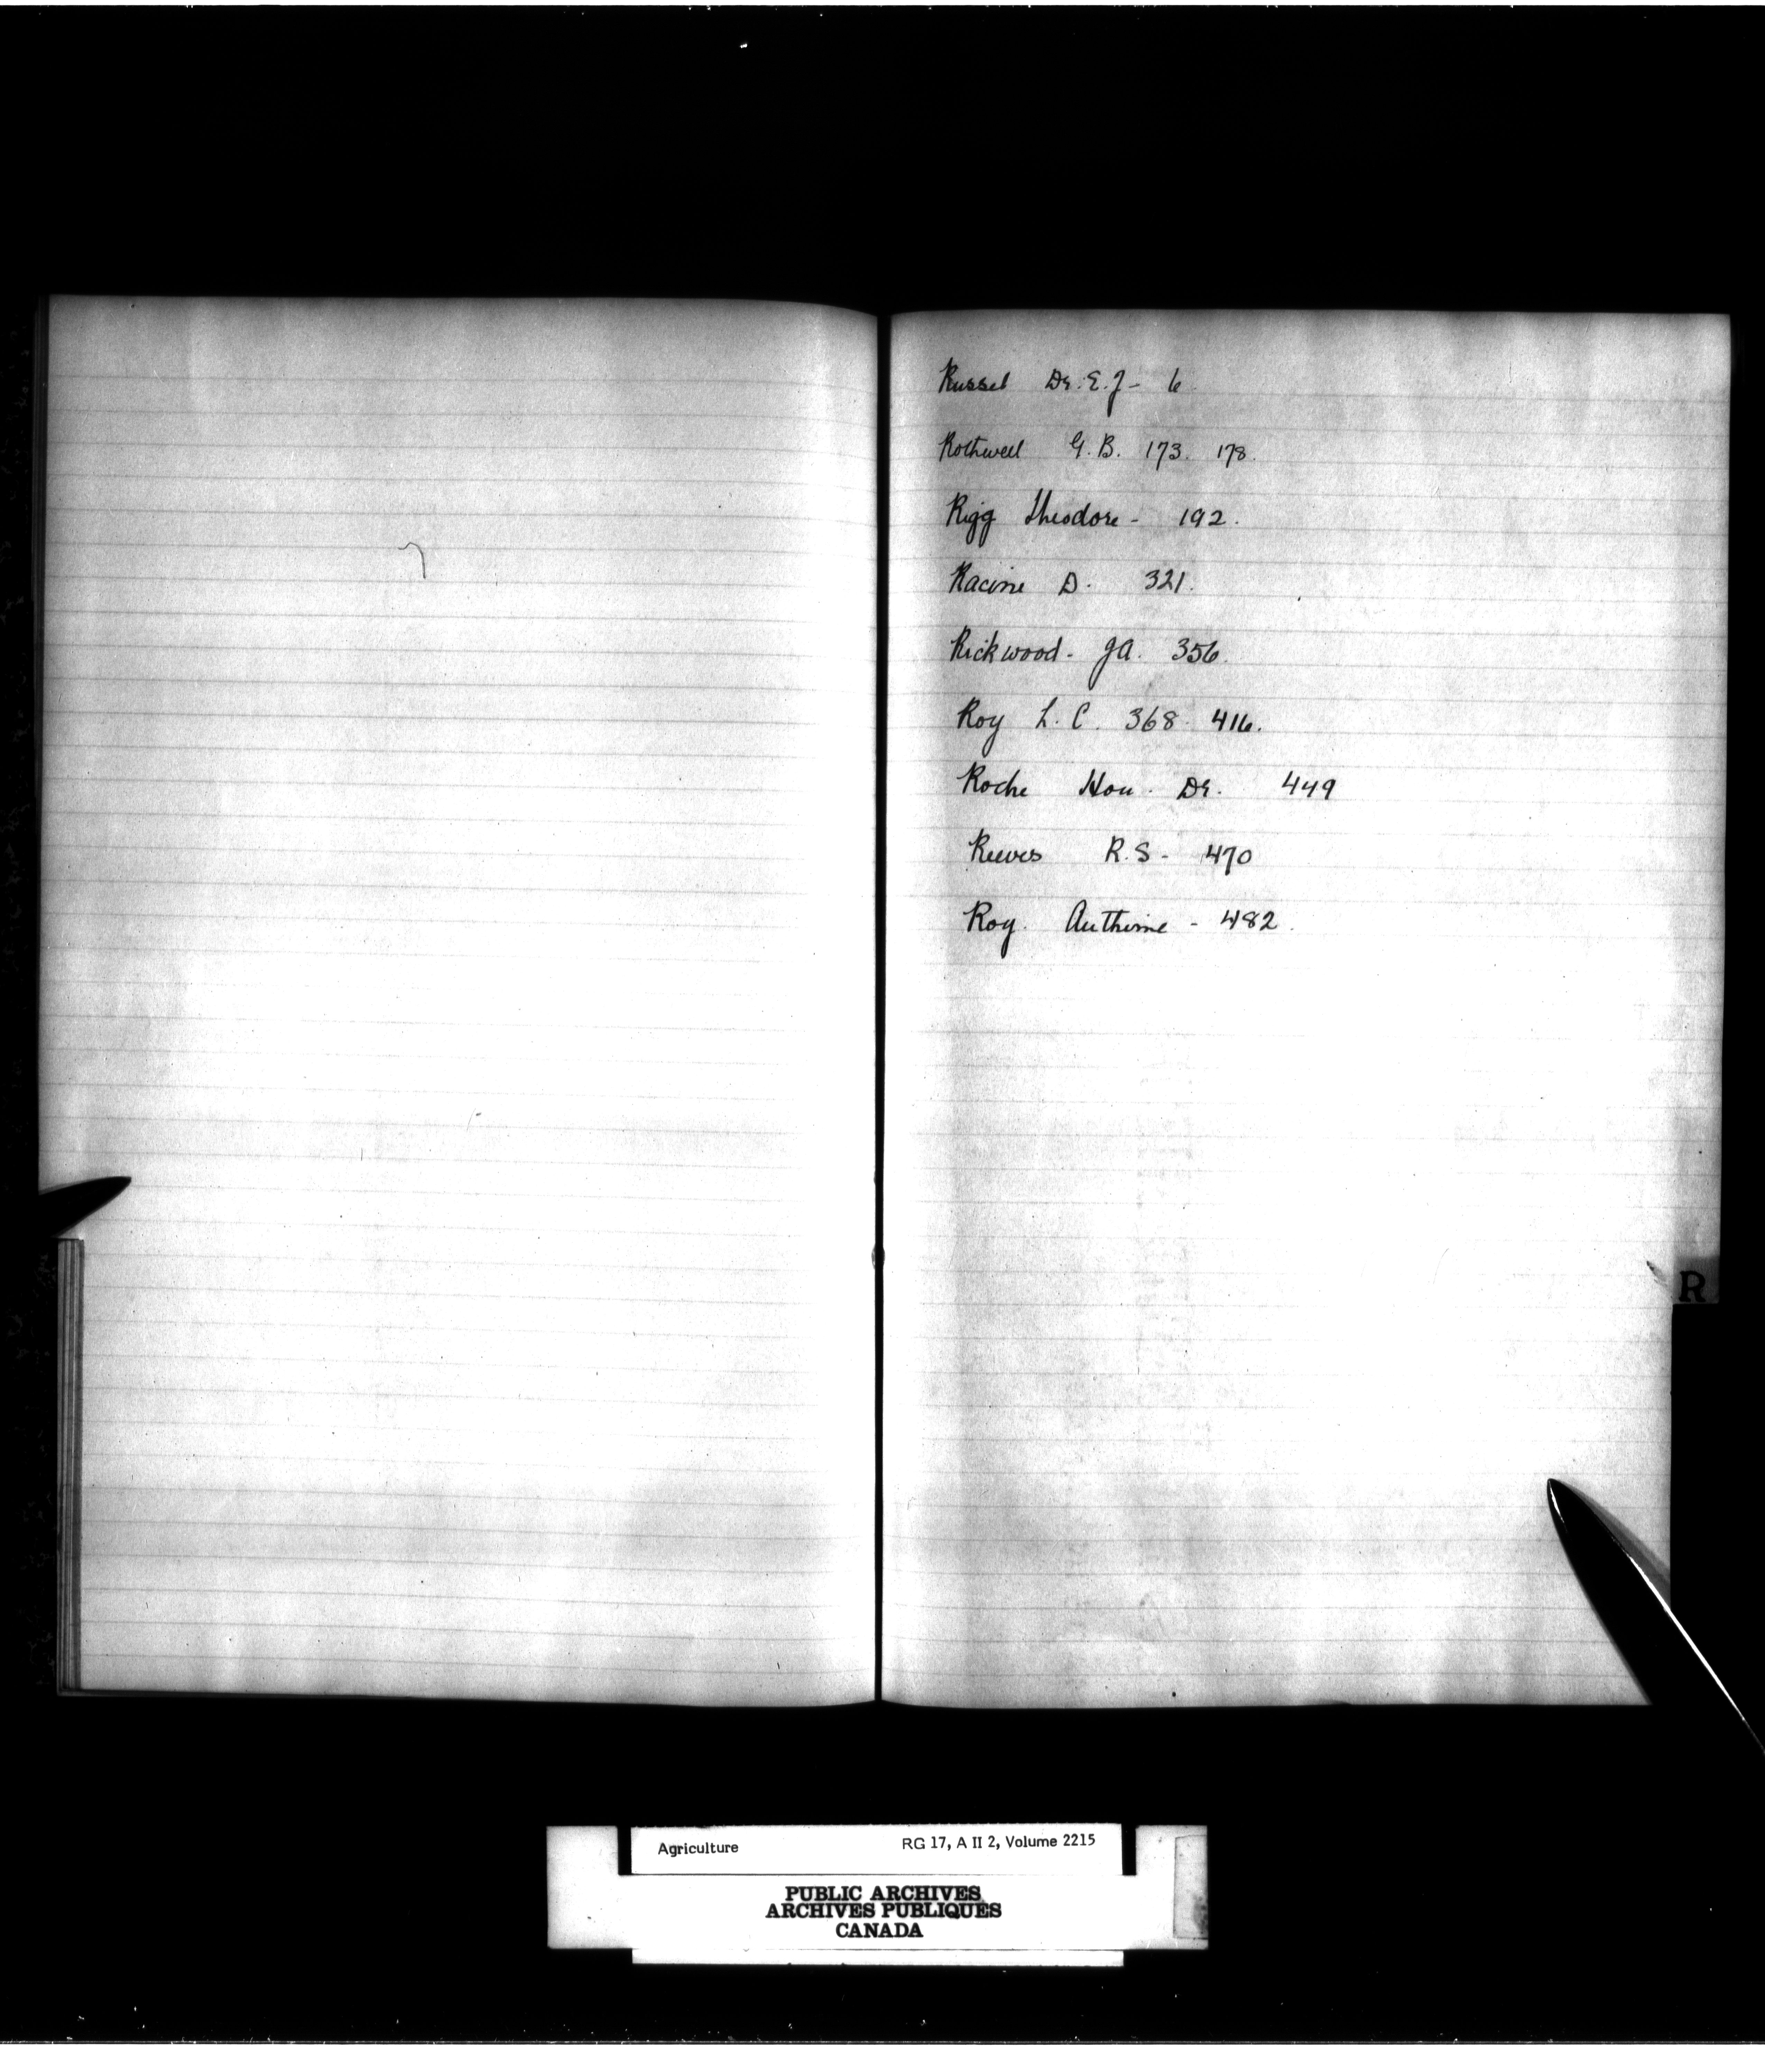 Russel Dr. E. J - 6
Rothwell G. B. 173. 178.
Rigg Theodore - 192.
Racine D. 321.
Rickwood - J A. 356.
Roy L. C. 368. 416.
Roche Hon. Dr. 449
Reeves R. S - 470
Roy. - 482.
R
Agriculture RG 17, A II 2, Volume 2215
PUBLIC ARCHIVES
ARCHIVES PUBLIQUES
CANADA